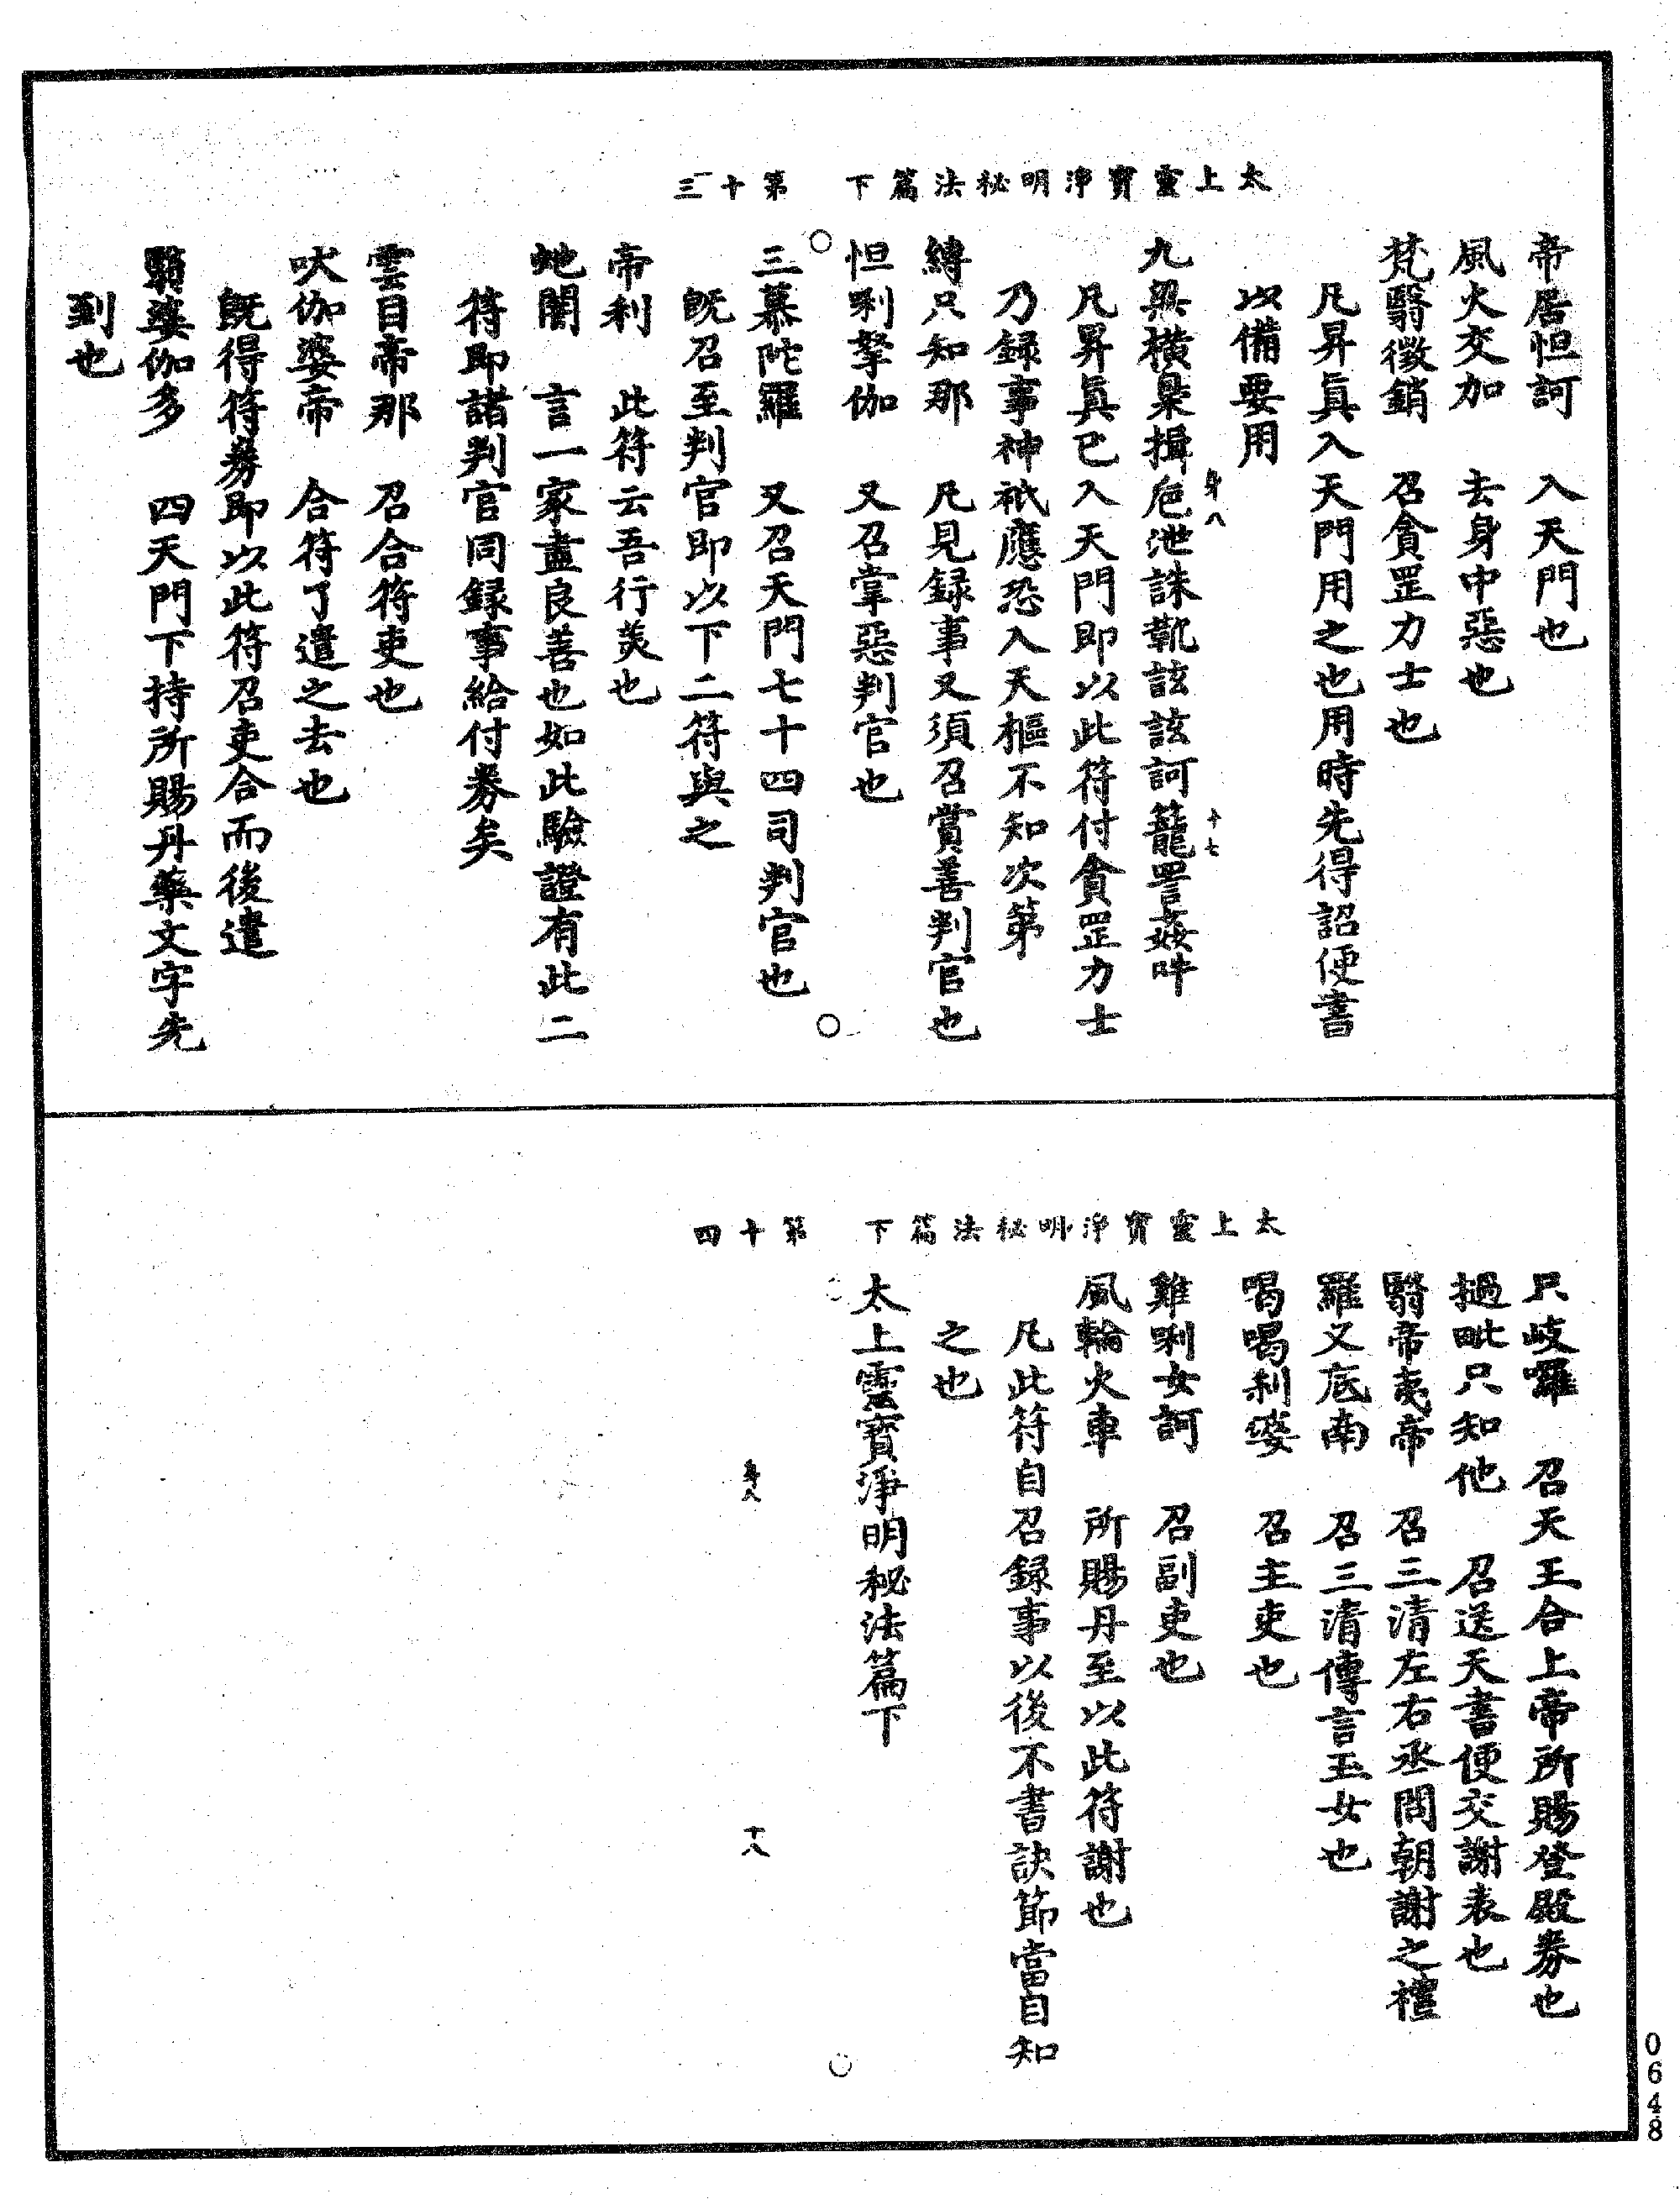 太上靈寶淨明秘法篇下　第十三
帝居怛訶　入天門也
風火交加　去身中惡也
梵翳徽銷　召貪罡力士也
凡昇眞入天門用之也用時先得詔便書
以備要用
身八　十七
九㷠橫梟揖庖泄誅靰該該訶籠詈姦吽
凡昇眞已入天門即以此符付貪罡力士
乃録事神祇應恐入天樞不知次第
縛只知那　凡見録事又須召賞善判官也
怛唎拏伽　又召掌惡判官也
三慕陀羅　又召天門七十四司判官也
既召至判官即以下二符與之
帝利　此符云吾行美也
虵闍　言一家盡良善也如此驗證有此二
符即諸判官同録事給付券矣
雲目帝那　召合符吏也
吠伽婆帝　合符了遣之去也
既得符券即以此符召吏合而後遣
翳婆伽多　四天門下持所賜丹藥文字先
到也
太上靈寶淨明秘法篇下　第十四
只岐囉　召天王合上帝所賜登殿券也
撾毗只知他　召送天書便交謝表也
翳帝夷帝　召三清左右丞問朝謝之禮
羅叉底南　召三清傳言玉女也
喝喝利婆　召主吏也
雞唎女訶　召副吏也
風輪火車　所賜丹至以此符謝也
凡此符自召録事以後不書訣節當自知
之也
太上靈寶淨明秘法篇下
身八　十八
0648